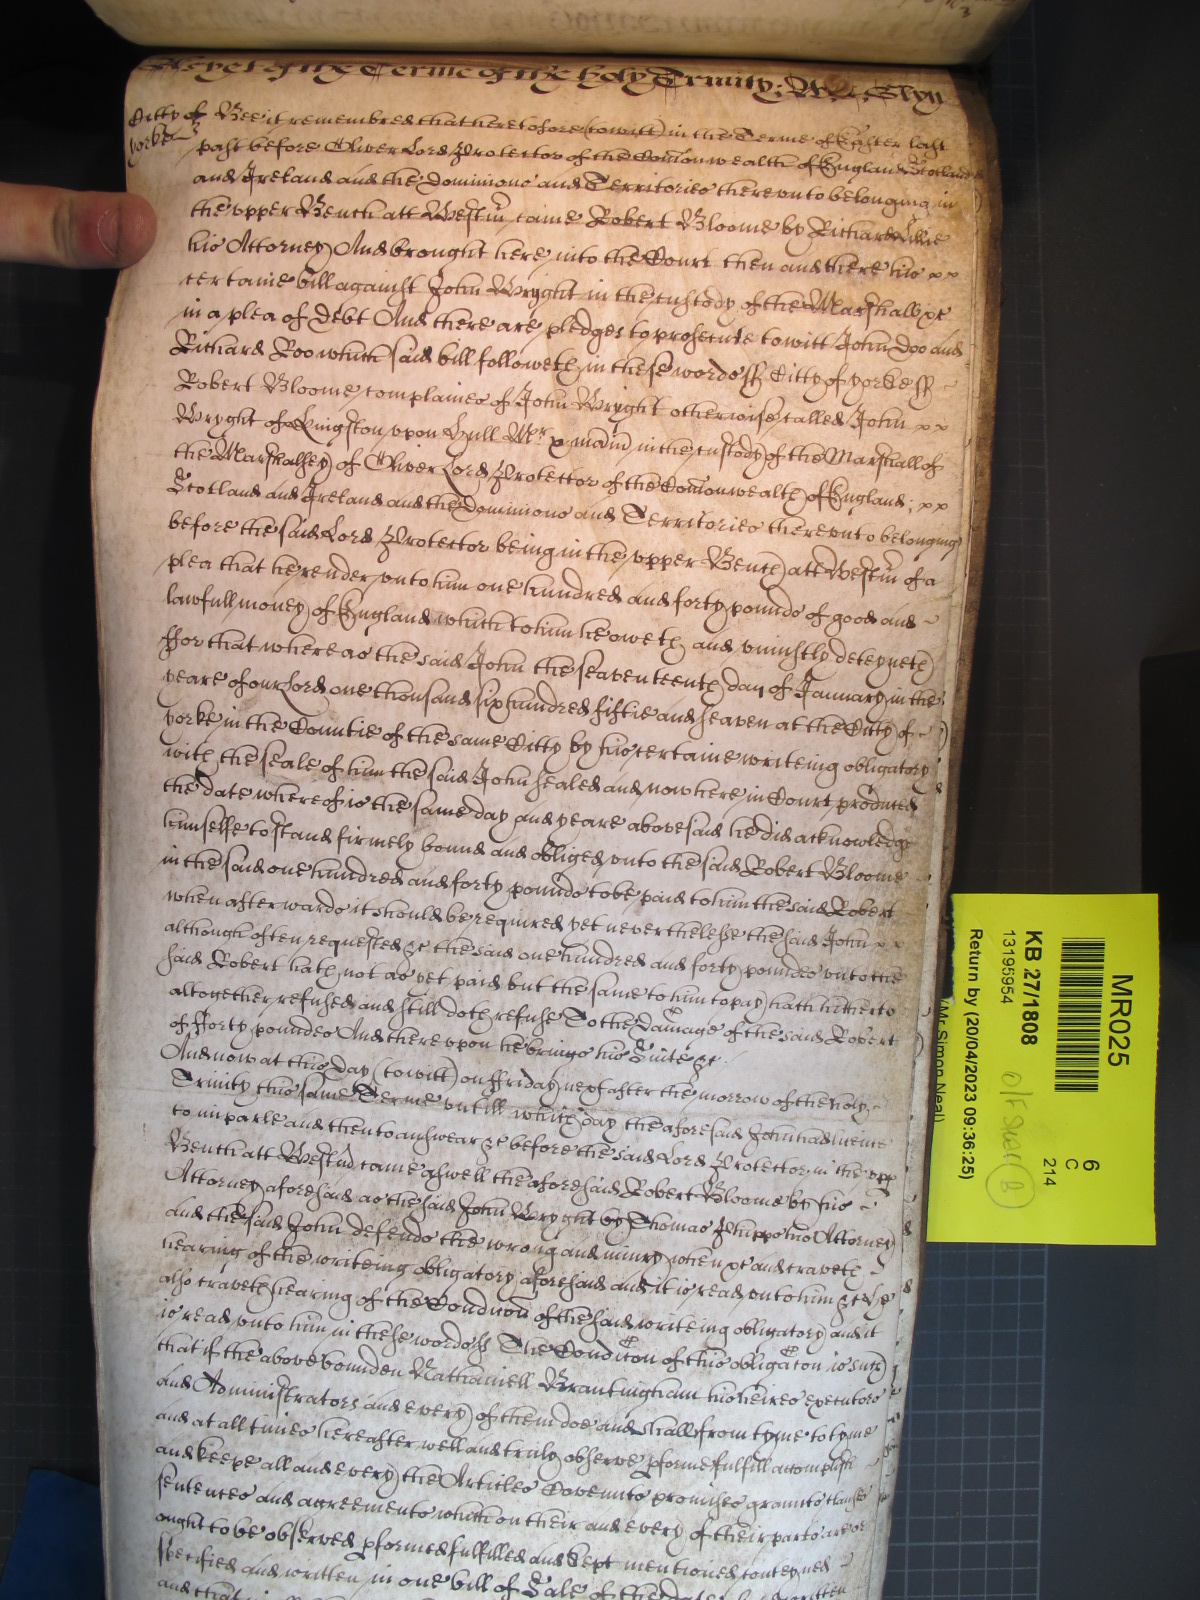 yet of the Terme of the holy Trinity:
Citty of
yorke
Bee it remembred that heretofore (to witt) in the Terme of Easter last
past before Oliver Lord Protector of the Comonwealth of England Scotland
and Ireland and the Dominions and Territories thereunto belonging in
the upper Bench att Westm̃ came Robert Bloome by Richard
his Attorney And brought here into the Court then and there his x x
certaine bill against John Wryght in the custody of the Marshall xc
in a plea of debt And there are pledges to prosecute to witt John Doo and
Richard Roo which said bill followeth in these words ss Citty of yorke ss
Robert Bloome complaines of John Wryght otherwise called John x x
Wryght of Kingston upon Hull in the custody of the Marshall of
the Marshalsey of Oliver Lord Protector of the Comonwealth of England, x x
Scotland and Ireland and the Dominions and Territories thereunto belonging
before the said Lord Protector being in the upper Bench att Westm̃ of a
plea that he render unto him one hundred and forty pounds of good and
lawfull money of England which to him he oweth and uniustly deteyneth
ffor that whereas the said John the seaventeenth day of January in the
yeare of our Lord one thousand six hundred fiftie and seaven at the Citty of
yorke in the Countie of the same Citty by his certaine writeing obligatory
with the seale of him the said John sealed and now here in Court produced
the date whereof is the same day and yeare abovesaid he did acknowledge
himselfe to stand firmely bound and obliged unto the said Robert Bloome
in the said one hundred and forty pounds to be paid to him the said Robert
when afterwards it should be required yet neverthelesse the said John x x
although often requested &c the said one hundred and forty poundes unto the
said Robert hath not as yet paid but the same to him to pay hath hitherto
altogether refused and still doth refuse To the Damage of the said Robert
of fforty poundes And thereupon he brings his Suite &c.
And now at this day (to witt) on ffriday next after the morrow of the holy
Trinity this same Terme untill which day the aforesaid John had licence
to imparle and then to answear &c before the said Lord Protector in the upp
Bench att Westm̃ came aswell the aforesaid Robert Bloome by his
Attorney aforesaid as the said John Wryght by Thomas Phipps his Attorney
and the said John defends the wrong and iniury when &c and craveth
hearing of the writeing obligatory aforesaid and it is read unto him &c he
also craveth hearing of the Condic̃on of the said writeing obligatory and it
is read unto him in these words ss The Condic̃on of this obligac̃on is such
that if the above bounden Nathaniell Brantingham his heires executors
and Administrators and every of them doe and shall from tyme to tyme
and at all times hereafter well and truly observe pforme fulfill accomplish
and keepe all and every the Articles Covennts promises graunts clauses
sentences and agreements which on their and every of their parts are or
ought to be observed pformed fulfilled and kept mentioned conteyned
specified and written in one bill of Sale of the
and that
MR025
6
C
214
KB 27/1808
13195954
Return by (20/04/2023 09:36:25)
(Mr Simon Neal)